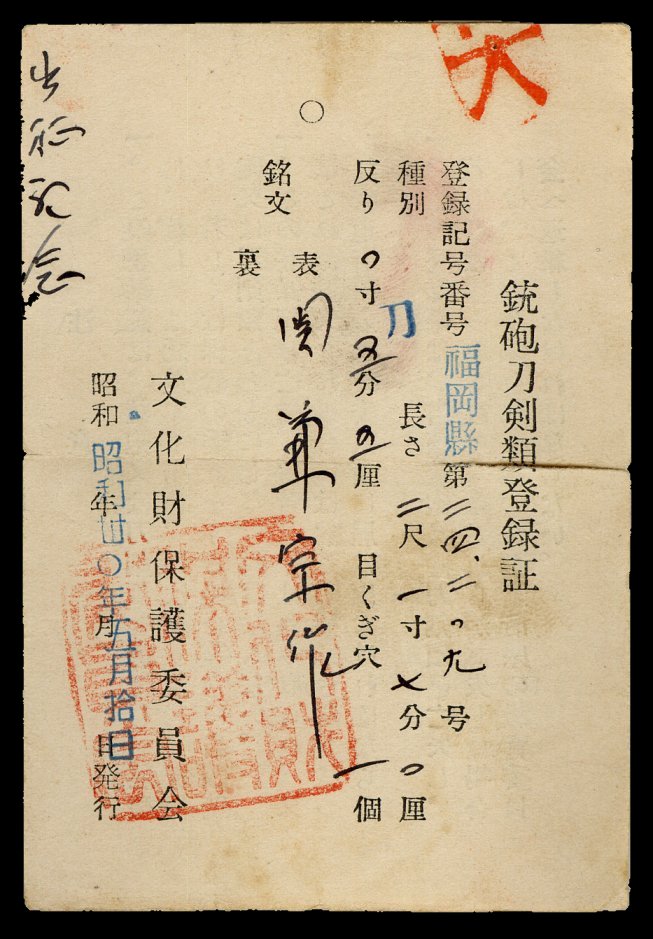 大
銃砲刀剣類登録証
登録記号番号 福岡縣 第二四、二〇九号
種別 刀 長さ 二尺一寸七分〇厘
反り 〇寸五分五厘 目くぎ穴 一個
銘文 表 関兼宗作
裏
文化財保護委員会
昭和 年 月 日発行
昭和卅〇年五月拾日